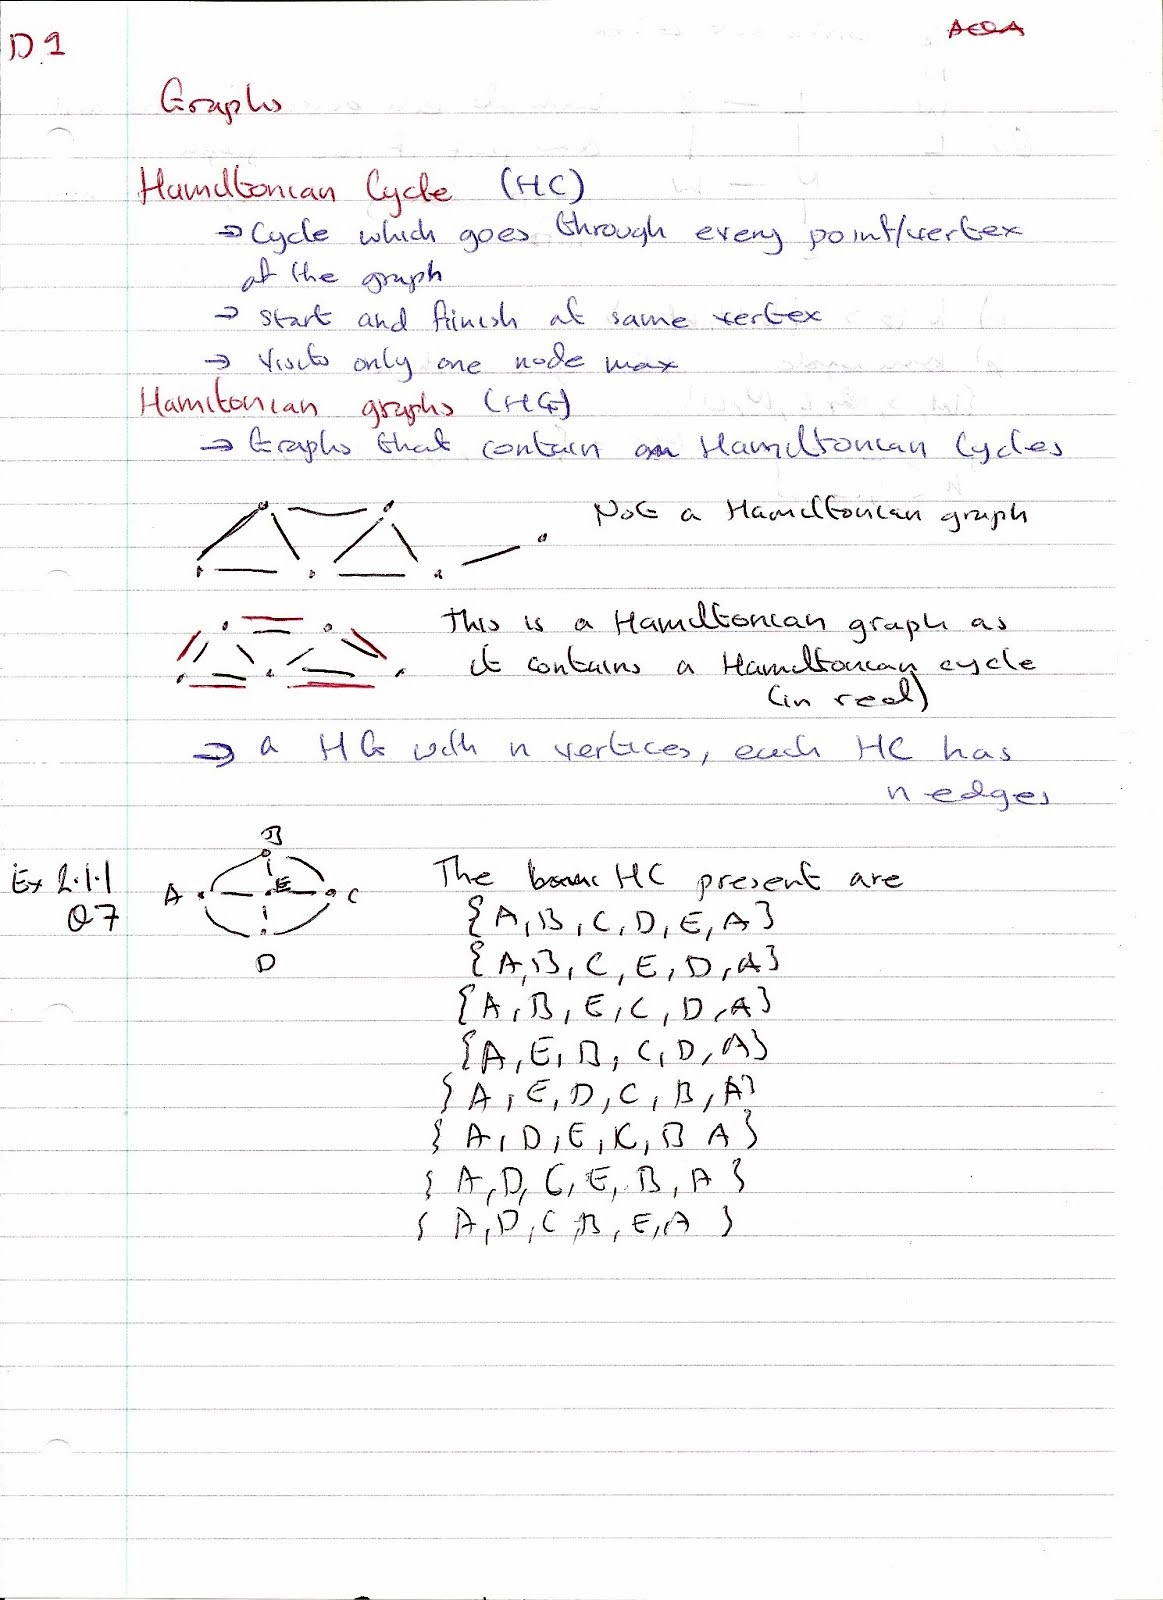 D1
AQA
Graphs
Hamiltonian Cycle (HC)
→ Cycle which goes through every point/vertex
of the graph
→ start and finish at same vertex
→ Visits only one node max
Hamitonian graphs (HG)
→ Graphs that contain an Hamiltonian Cycles
Not a Hamiltonian graph
This is a Hamiltonian graph as
it contains a Hamiltonian cycle
(in red)
→ a HG with n vertices, each HC has
n edges
Ex 2.1.1
Q7
B
A E C
D
The HC present are
{A,B,C,D,E,A}
{A,B,C,E,D,A}
{A,B,E,C,D,A}
{A,E,B,C,D,A}
{A,E,D,C,B,A}
{A,D,E,C,B A}
{A,D,C,E,B,A}
{A,D,C,B,E,A}